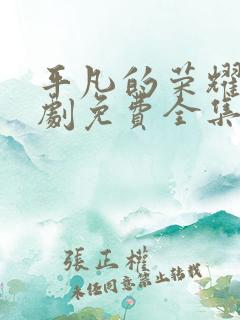 平凡的荣耀
劇免費全集
張正權
未经同意禁止转载